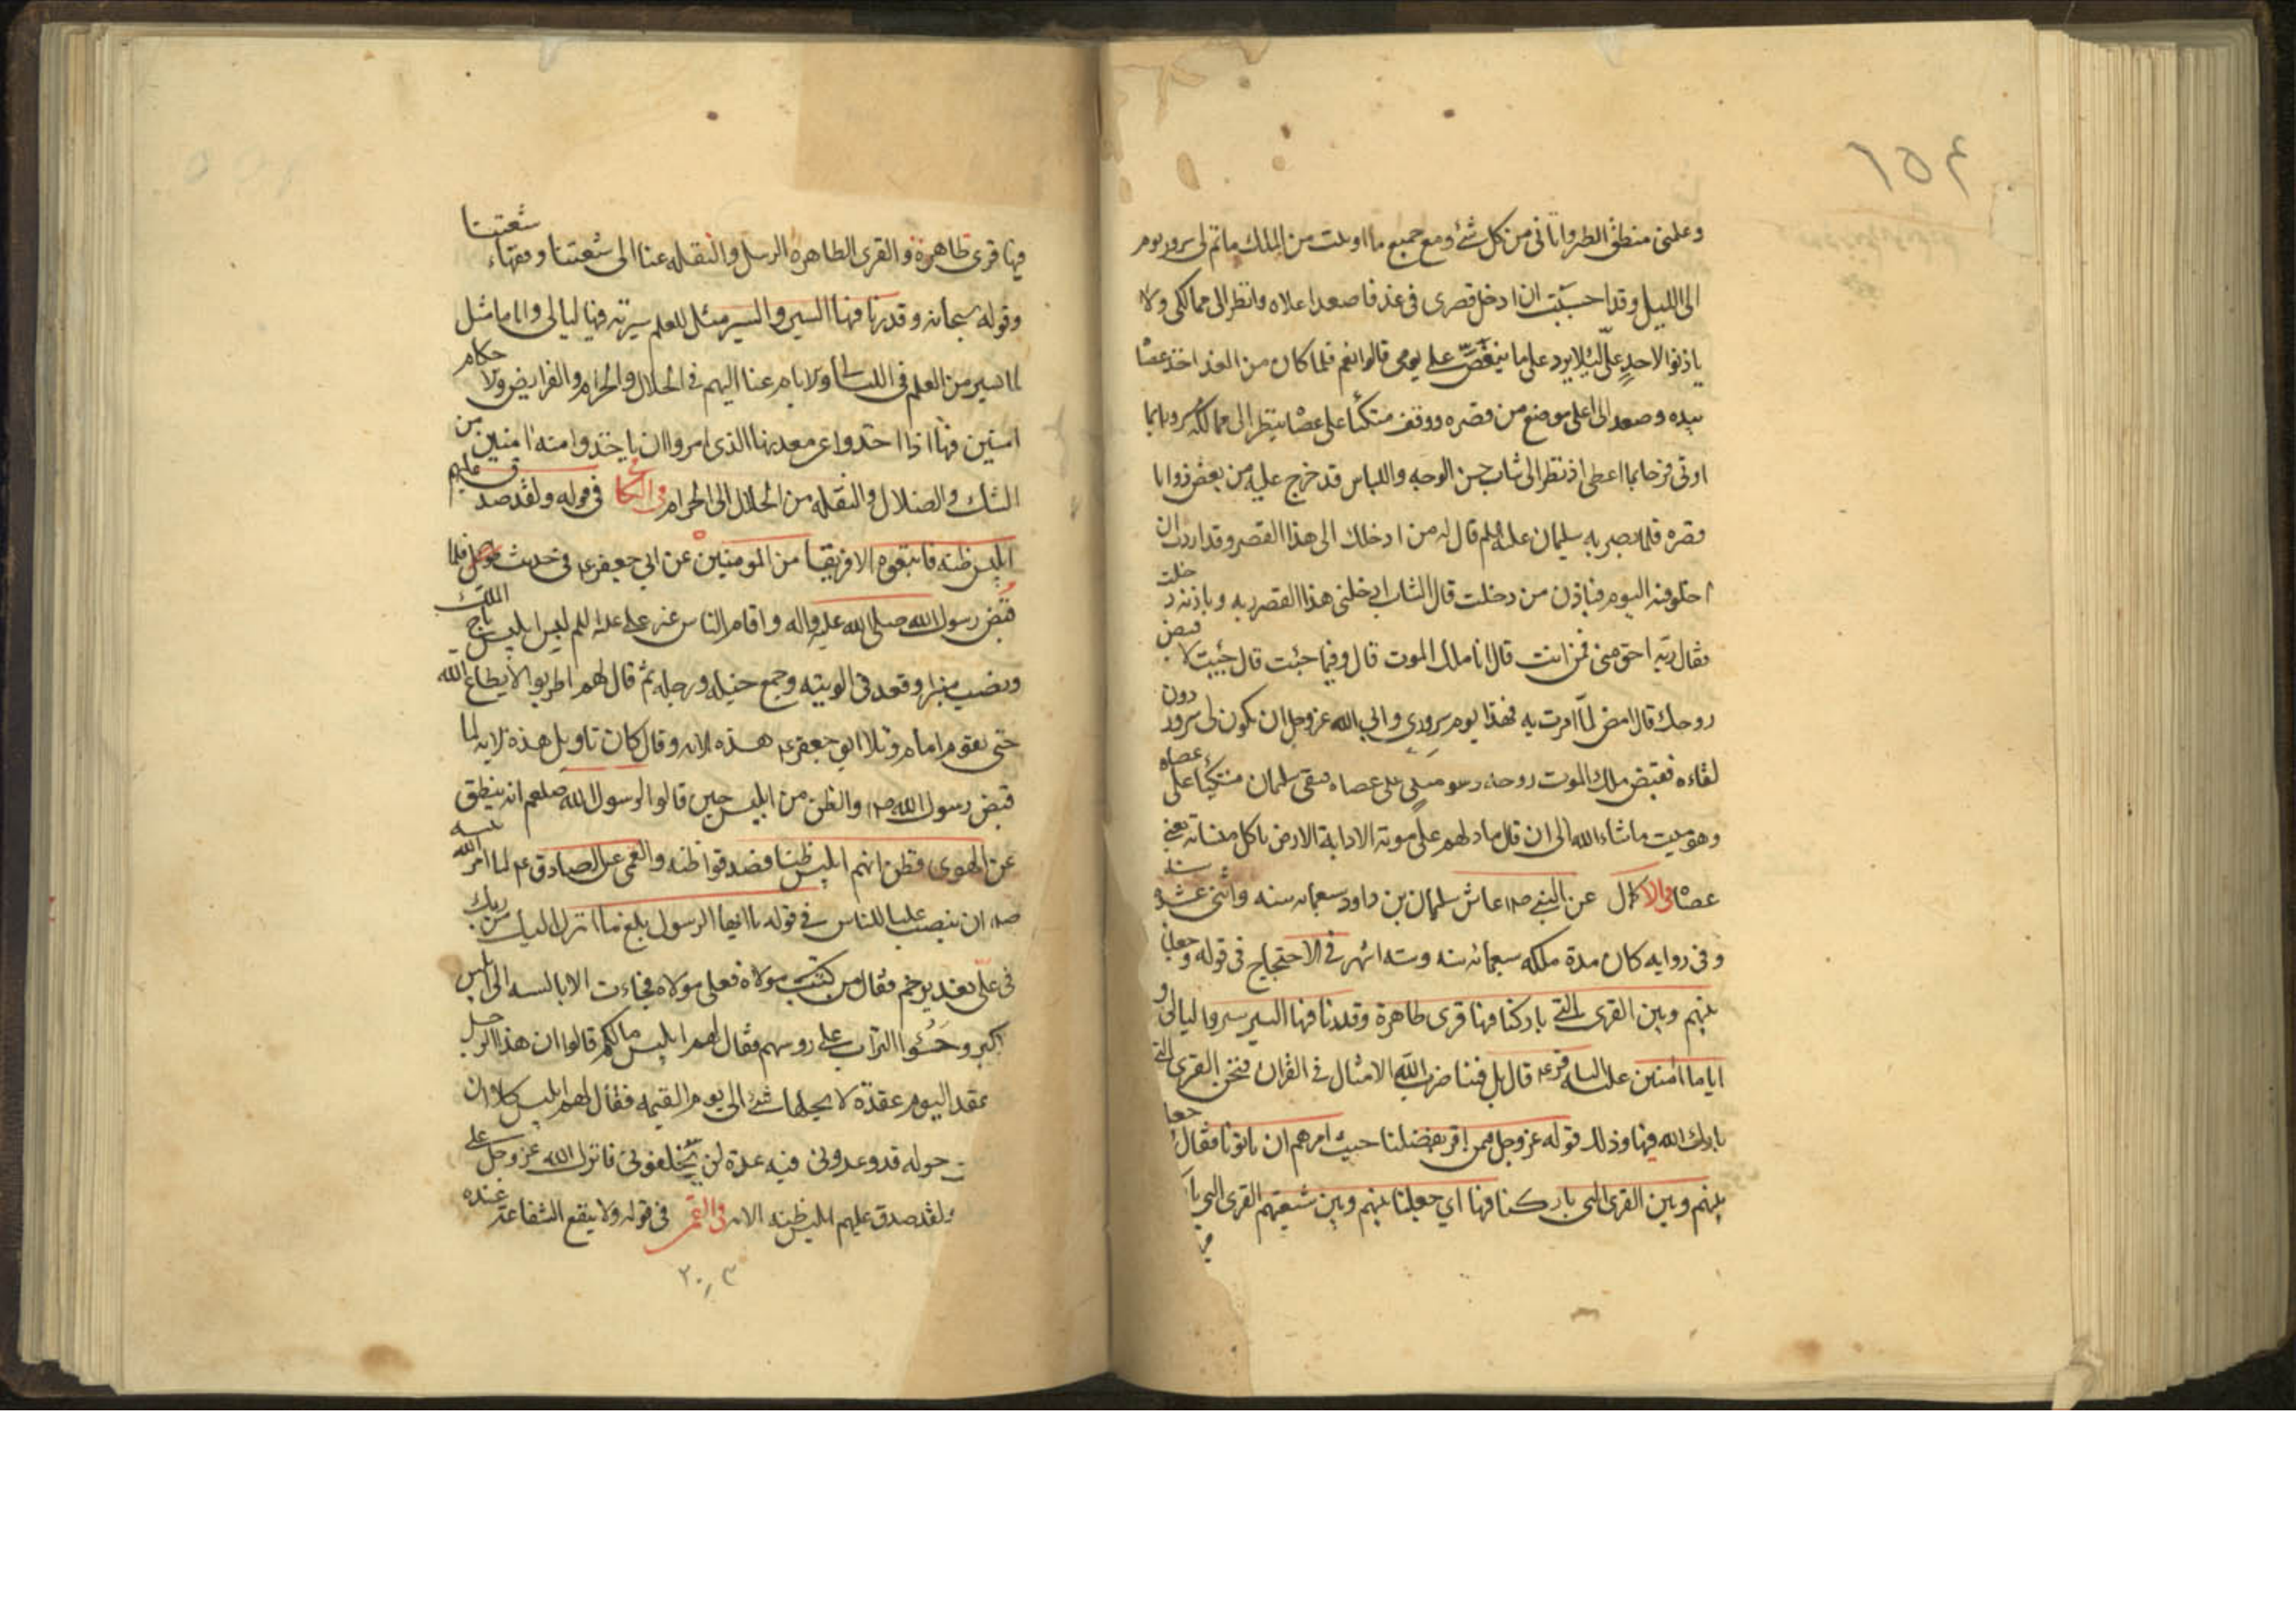 ١٥٤
وعلمنى منطق الطير واتانى من كل شئ ومع جميع ما اوتيت من الملك ماتم لى سرور يوم
الى الليل وقد احببت ان ادخل قصرى فى غد فاصعد اعلاه وانظر الى ممالكى ولا
ياذنوا لاحد علىّ لئلا يرد على ما ينغّص على يومى قالوا نعم فلما كان من الغد اخذ عصا
بيده وصعد الى اعلى موضع من قصره ووقف متكئا على عصا ينظر الى ممالكه سرورا بما
اوتى فرحا بما اعطى اذ نظر الى شاب حسن الوجه واللباس قد خرج عليه من بعض زوايا
قصره فلما بصر به سليمان عليه السلم قال له من ادخلك الى هذا القصر وقد اردت ان
اخلو فيه اليوم فباذن من دخلت قال الشاب ادخلنى هذا القصر ربه وباذنه دخلت
فقال ربه احق منى فمن انت قال انا ملك الموت قال وفيما جئت قال جئت لاقبض
روحك قال امض لما امرت به فهذا يوم سرورى وابى الله عز وجل ان يكون لى سرور دون
لقاءه فقبض ملك الموت روحه وهو متكى على عصاه فبقى سليمان متكئا على عصاه
وهو ميت ماشاء الله الى ان قال مادلهم على موته الا دابة الارض تاكل منسأته يعنى
عصا وفى الاكمال عن النبى ص عاش سليمان بن داود سبعمائه سنه واثنى عشر سنه
وفى روايه كان مدة ملكه سبعمائه سنه وسته اشهر فى الاحتجاج فى قوله وجعلنا
بينهم وبين القرى التى باركنا فيها قرى ظاهرة وقدرنا فيها السير سيروا ليالى و
اياما آمنين عن الباقر ع قال بل فينا ضرب الله الامثال فى القران فنحن القرى التى
بارك الله فيها وذلك قوله عز وجل فيمن اقر بفضلنا حيث امرهم ان ياتونا فقال جعلنا
بينهم وبين القرى التى باركنا فيها اي جعلنا بينهم وبين شيعتهم القرى التى با
فيها قرى ظاهرة والقرى الظاهره الرسل والنقله عنا الى شيعتنا وفقهاء شيعتنا
وقوله سبحانه وقدرنا فيها السير والسير مثل للعلم سيرته فيها ليالى واياما مثل
لما يسير من العلم فى الليالى والايام عنا اليهم فى الحلال والحرام والفرايض والاحكام
امنين فيها اذا اخذوا عن معدنها الذى امروا ان ياخذوا منه امنين من
الشك والضلال والنقله من الحلال الى الحرام وفى الكافى فى قوله ولقد صدق عليهم
ابليس ظنه فاتبعوه الا فريقا من المومنين عن ابي جعفر ع فى حديث طويل فلما
قبض رسول الله صلى الله عليه واله واقام الناس غير على عليه السلم لبس ابليس تاج الملك
ونصب منبرا وقعد فى الويته وجمع خيله ورجله ثم قال لهم اطربوا لا يطاع الله
حتى يقوم امام وتلا ابو جعفر ع هذه الايه وقال كان تاويل هذه الايه لما
قبض رسول الله ص والظن من ابليس حين قالوا لرسول الله صلعم انه ينطق
عن الهوى فظن انهم ابليس ظنا فصدقوا ظنه والقمى عن الصادق ع لما امر الله نبيه
ص ان ينصب عليا للناس فى قوله يا ايها الرسول بلغ ما انزل اليك من ربك
فى علىّ بغدير خم فقال من كنت مولاه فعلى مولاه فجاءت الابالسه الى ابليس
اكبر وحثوا التراب على روسهم فقال لهم ابليس مالكم قالوا ان هذا الرجل
عقد اليوم عقدة لا يحلها شئ الى يوم القيمه فقال لهم ابليس كلا ان
حوله قد وعدونى فيه عدة لن يخلفونى فانزل الله عز وجل على
ولقد صدق عليهم ابليس ظنه الايه والقمى فى قوله ولا ينفع الشفاعة عنده